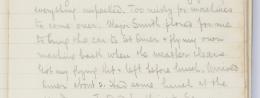 everything unpacked. Too misty for machines
to come over. Major Smith phoned for me
to bring the car to St Omer & fly my own
machine back when the weather clears
Got my flying kit & left before lunch. Arrived
Omer about 2. Had some lunch at the